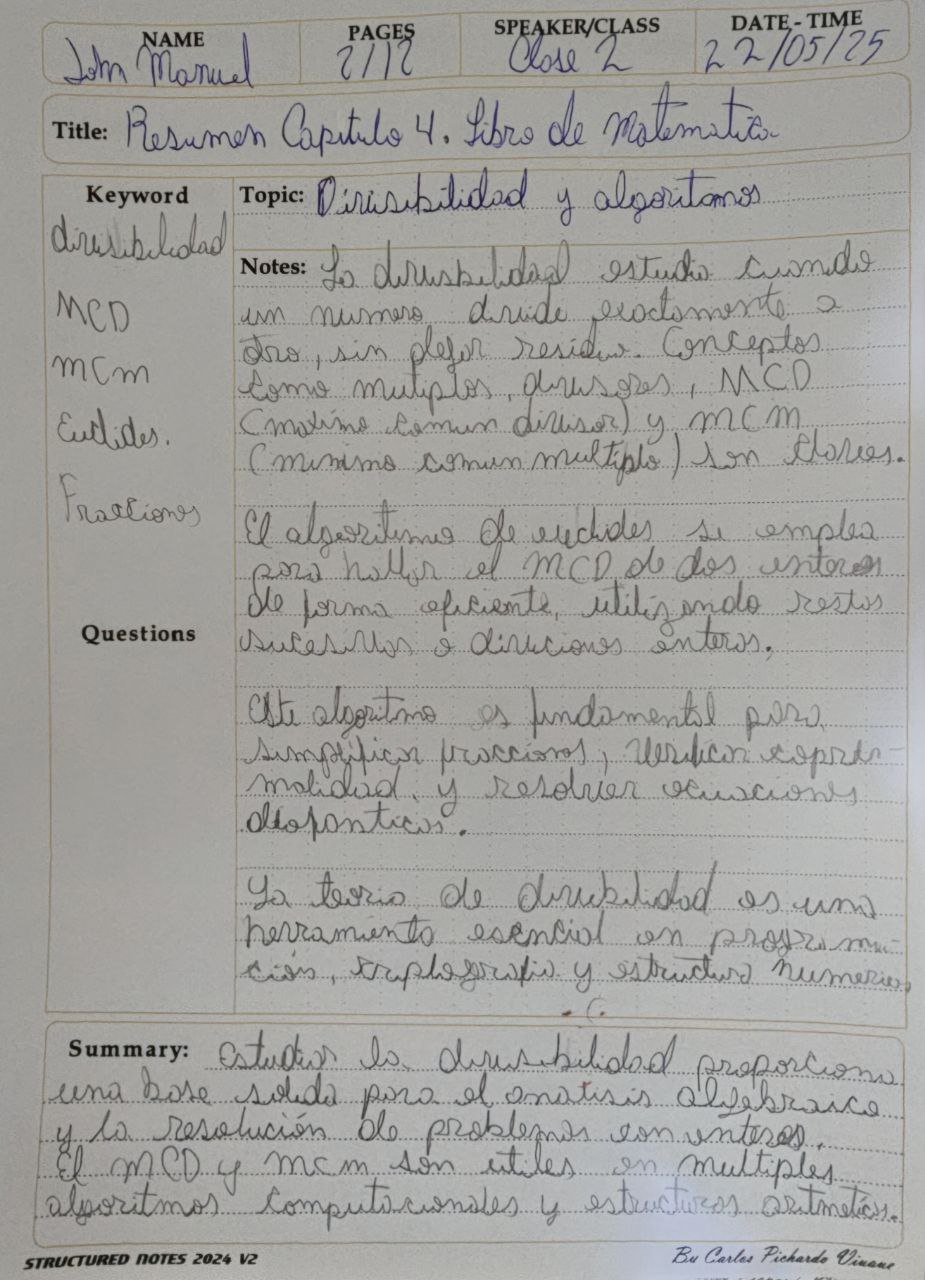 NAME PAGES SPEAKER/CLASS DATE - TIME
John Manuel 2/12 Clase 2 22/05/25
Title: Resumen Capitulo 4. Libro de Matematica
Keyword
divisibilidad
MCD
mcm
Euclides.
Fracciones
Questions
Topic: Divisibilidad y algoritmos
Notes: La divisibilidad estudia cuando
un numero divide exactamente a
otro, sin dejar residuo. Conceptos
como mutiplos, divisores, MCD
(maximo comun divisor) y MCM
(minimo comun multiplo) son claves.
El algoritimo de euclides se emplea
para hallar el MCD de dos enteros
de forma eficiente, utilizando restos
sucesivos o diviciones enteros.
Este algoritmo es fundamental para
simplificar fracciones, verificar copri-
malidad, y resolver ecuaciones
diofanticas.
La teoria de divibilidad es una
herramienta esencial en programa-
ción, criptografia y estructura numerica
Summary: Estudiar la divisibilidad proporciona
una base solida para el analisis algebraico
y la resolución de problemas con enteros.
El MCD y mcm son utiles en multiples
algoritmos computacionales y estructuras aritmeticas.
STRUCTURED NOTES 2024 V2
By Carlos Pichardo Viuque